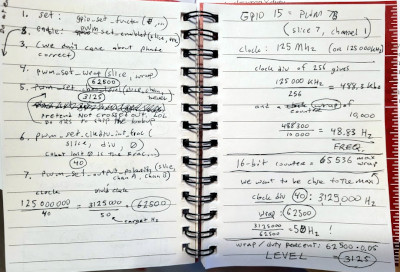 1. set: gpio_set_function (#, fn)
2. enable: pwm_set_enabled (slice, true)
3. (we don't care about phase
correct)
4. pwm_set_wrap (slice, wrap)
62500
5.
3125
pretend NOT crossed out, LOL
6. pwm_set_clkdiv_int_frac (
slice, div, 0)
(that last 0 is the frac...)
40
7. pwm_set_output_polarity (slice,
chan A, chan B)
clock
125 000 000 / 40 = 3125000 / 50 = 62500
target Hz
GPIO 15 = PWM 7B
(slice 7, channel 1)
clock: 125 MHz (or 125000 kHz)
clock div of 256 gives
125 000 KHz / 256 = 488.3 kHz
and a wrap of
counter 10,000
488300 / 10,000 = 48.83 Hz
FREQ.
16-bit counter = 65536 max wrap
(we want to be close to the max)
clock div 40: 3125000 Hz
wrap: 62500
3125000 / 62500 = 50 Hz!
wrap/duty percent: 62500 · 0.05
LEVEL = 3125